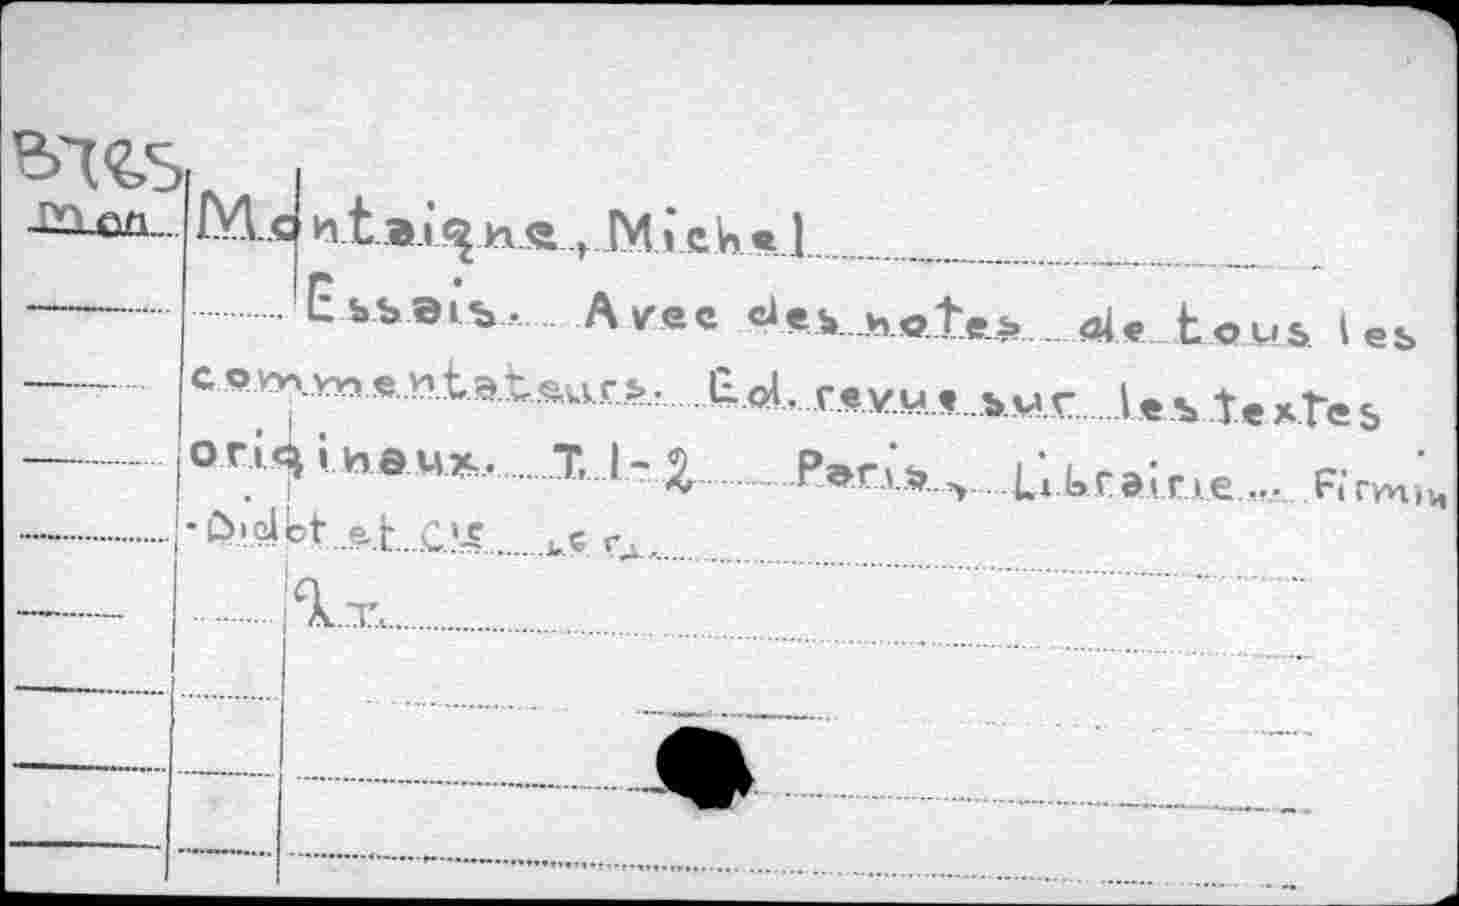 Mon
Montaigne, Michel
Essais. Avec des notes de tous les
commentateurs. Ed. revue sur les textes
originaux. T. 1-2 Paris, Librairie... Firmin
-Didot et Cie
2 T.